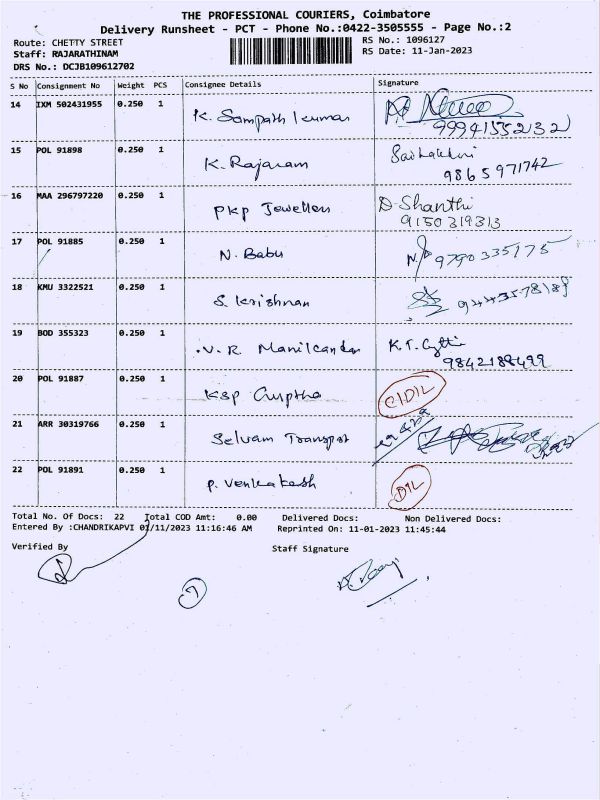 THE PROFESSIONAL COURIERS, Coimbatore
Delivery Runsheet - PCT - Phone No.:0422-3505555 - Page No.:2
Route: CHETTY STREET
RS No.: 1096127
Staff: RAJARATHINAM
RS Date: 11-Jan-2023
DRS No.: DCJB109612702
S No Consignment No Weight PCS Consignee Details Signature
14 IXM 502431955 0.250 1 K. Sampath kumar
9994155232
15 POL 91898 0.250 1 K. Rajaram
9865971742
16 MAA 296797220 0.250 1 PKP Jewellers D-Shanthi
9150319313
17 POL 91885 0.250 1 N. Babu 9790335175
18 KMU 3322521 0.250 1 S. Krishnan
19 BOD 355323 0.250 1 V. R. Manikandan K.T.
9842188499
20 POL 91887 0.250 1 KSP
21 ARR 30319766 0.250 1 Selvam Transpot
22 POL 91891 0.250 1 P. Venkatesh DIL
Total No. Of Docs: 22 Total COD Amt: 0.00 Delivered Docs: Non Delivered Docs:
Entered By :CHANDRIKAPVI 01/11/2023 11:16:46 AM Reprinted On: 11-01-2023 11:45:44
Verified By Staff Signature